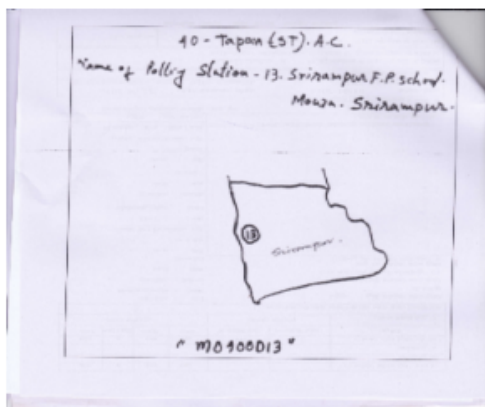 40 - Tapan (ST). A.C.
Name of Polling Station - 13. Srirampur F.P. school.
Mouza. Srirampur.
13
Srirampur.
"M0400013"